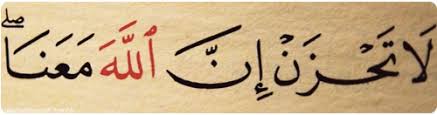 لَا تَحْزَنْ إِنَّ ٱللَّهَ مَعَنَا ۖ